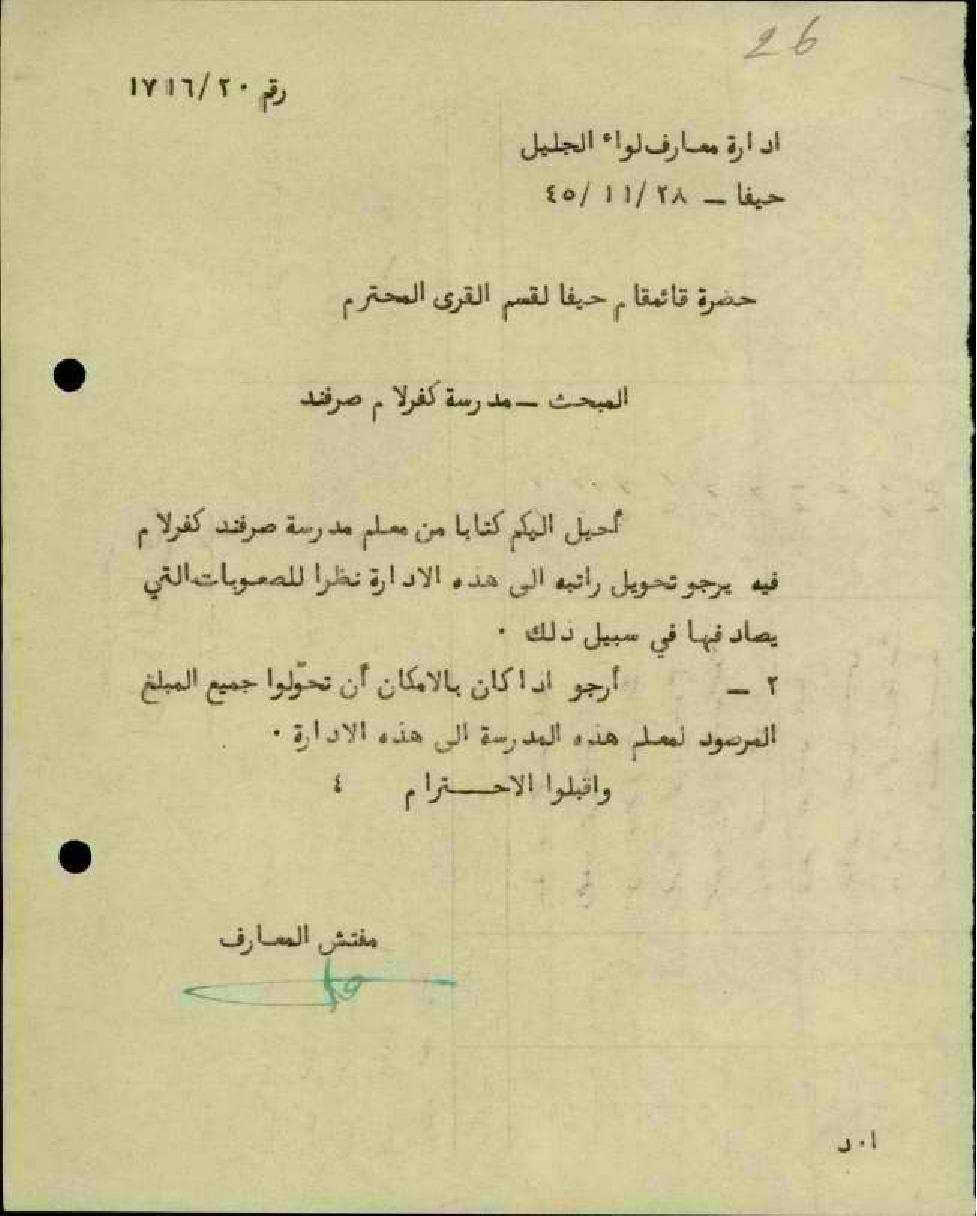 26
رقم ١٧١٦/٢٠
ادارة معارف لواء الجليل
حيفا – ٤٥/١١/٢٨
حضرة قائمقام حيفا لقسم القرى المحترم
المبحث – مدرسة كفرلام صرفند
أحيل اليكم كتابا من معلم مدرسة صرفند كفرلام
فيه يرجو تحويل راتبه الى هذه الادارة نظرا للصعوبات التي
يصادفها في سبيل ذلك ٠
٢ – أرجو اذا كان بالامكان أن تحوّلوا جميع المبلغ
المرصود لمعلم هذه المدرسة الى هذه الادارة ٠
واقبلوا الاحـــترام ٤
مفتش المعارف
ا٠د